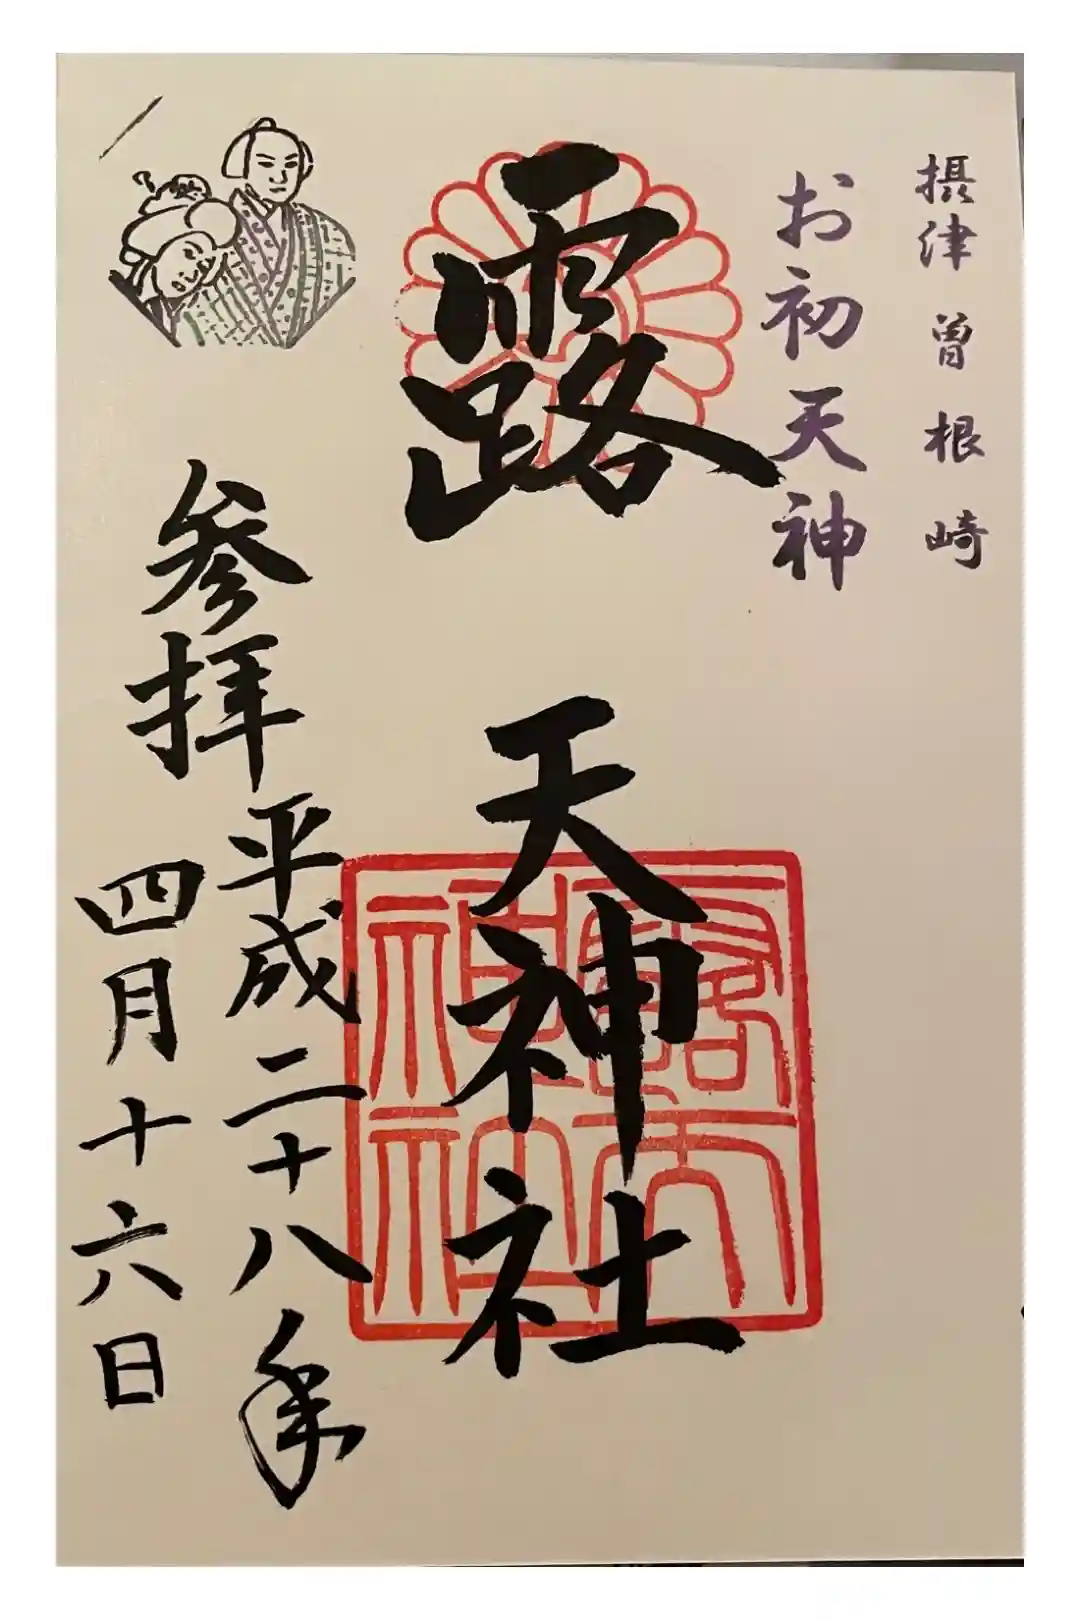 摂津 曽根崎
お初天神
露 天神社
露天神社
参拝
平成二十八年
四月十六日